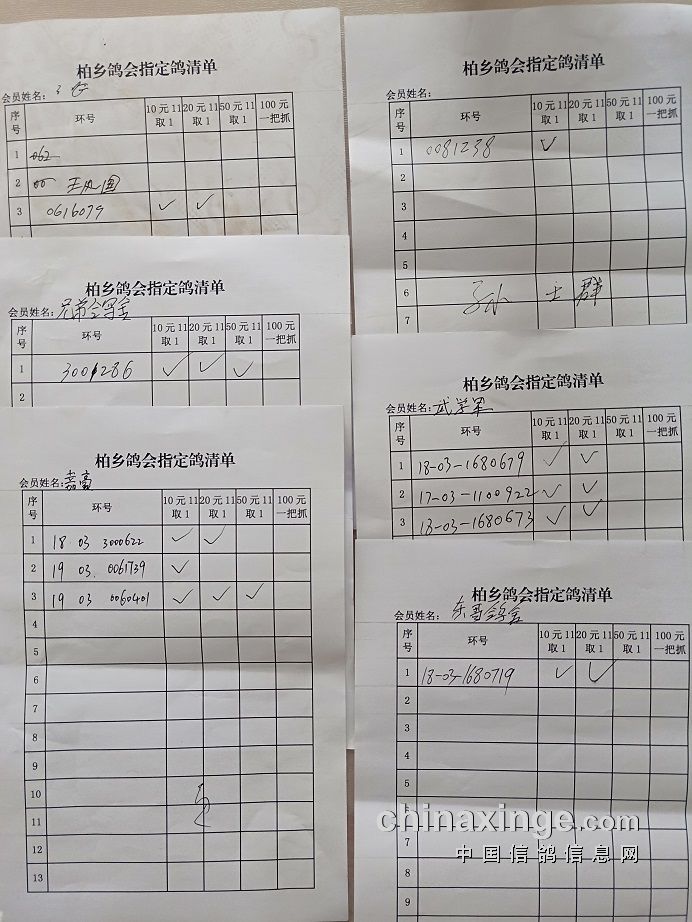 柏乡鸽会指定鸽清单
会员姓名：
序号 环号 10元11取1 20元11取1 50元11取1 100元一把抓
1 062
2 王风国
3 0616079 ✓ ✓
柏乡鸽会指定鸽清单
会员姓名：兄弟鸽舍
序号 环号 10元11取1 20元11取1 50元11取1 100元一把抓
1 3001286 ✓ ✓ ✓
2
柏乡鸽会指定鸽清单
会员姓名：
序号 环号 10元11取1 20元11取1 50元11取1 100元一把抓
1 18 03 3000622 ✓ ✓
2 19 03. 0061739 ✓
3 19 03 0060401 ✓ ✓ ✓
4
5
6
7
8
9
10
11
12
13
柏乡鸽会指定鸽清单
会员姓名：
序号 环号 10元11取1 20元11取1 50元11取1 100元一把抓
1 0081238 ✓
2
3
4
5
6 士群
7
柏乡鸽会指定鸽清单
会员姓名：武学军
序号 环号 10元11取1 20元11取1 50元11取1 100元一把抓
1 18-03-1680679 ✓ ✓
2 17-03-1100922 ✓ ✓
3 18-03-1680673 ✓ ✓
柏乡鸽会指定鸽清单
会员姓名：东哥鸽舍
序号 环号 10元11取1 20元11取1 50元11取1 100元一把抓
1 18-03-1680719 ✓ ✓
2
3
4
5
7
8
9
chinaxinge.com
中国信鸽信息网